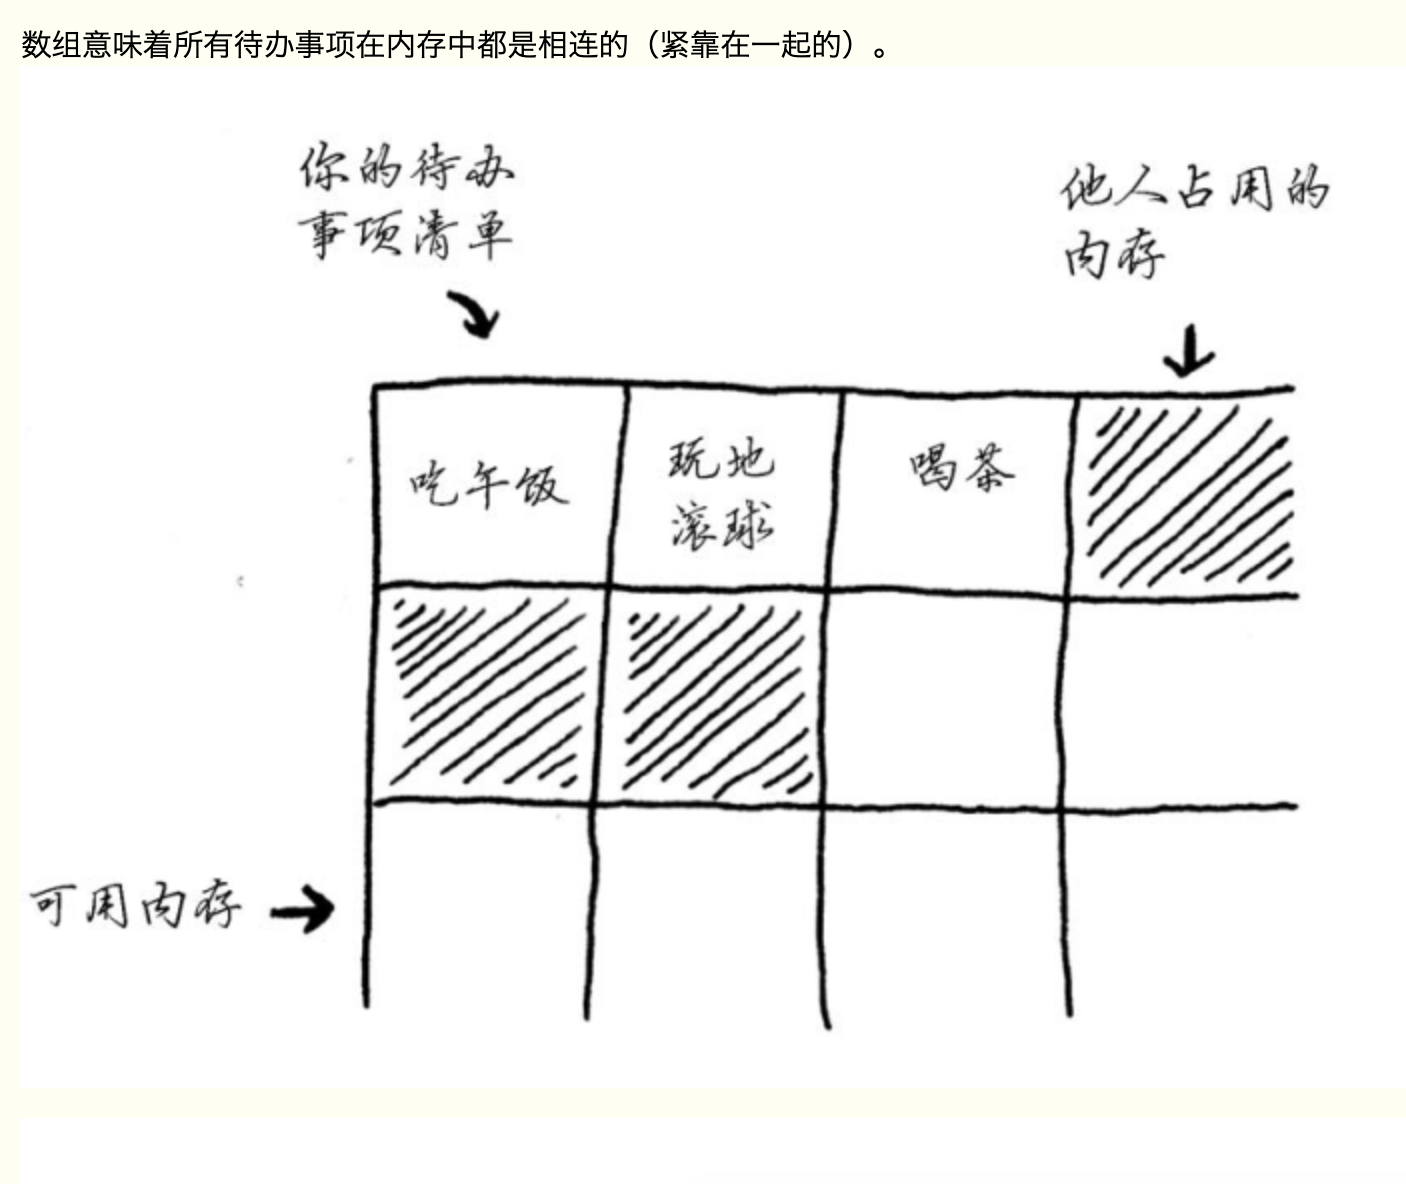 数组意味着所有待办事项在内存中都是相连的（紧靠在一起的）。
你的待办
事项清单
他人占用的
内存
吃午饭
玩地
滚球
喝茶
可用内存